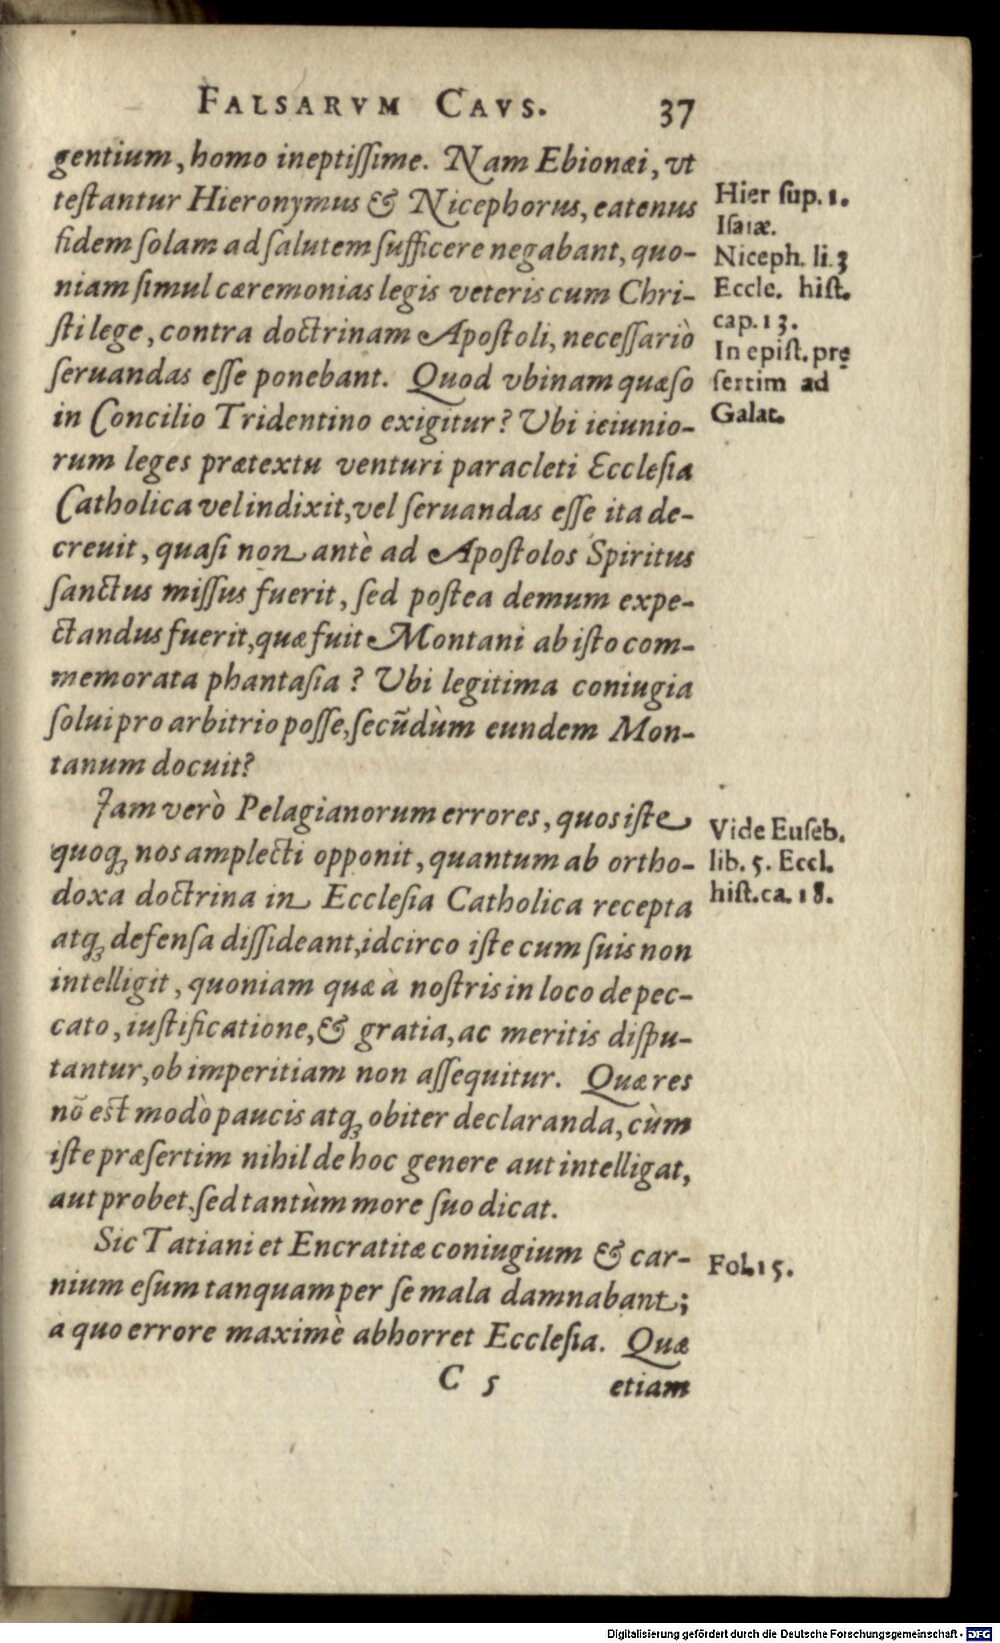 FALSARVM CAVS. 37
gentium, homo ineptiſſime. Nam Ebionæi, vt
teſtantur Hieronymus & Nicephorus, eatenus
fidem ſolam ad ſalutem ſufficere negabant, quo-
niam ſimul cæremonias legis veteris cum Chri-
ſti lege, contra doctrinam Apoſtoli, neceſſariò
ſeruandas eſſe ponebant. Quod vbinam quæſo
in Concilio Tridentino exigitur? Vbi ieiunio-
rum leges prætextu venturi paracleti Eccleſia
Catholica vel indixit, vel ſeruandas eſſe ita de-
creuit, quaſi non antè ad Apoſtolos Spiritus
ſanctus miſſus fuerit, ſed poſtea demum expe-
ctandus fuerit, quæ fuit Montani ab iſto com-
memorata phantaſia? Vbi legitima coniugia
ſolui pro arbitrio poſſe, ſecūdùm eundem Mon-
tanum docuit?
Iam verò Pelagianorum errores, quos iſte
quoqꝫ nos amplecti opponit, quantum ab ortho-
doxa doctrina in Eccleſia Catholica recepta
atqꝫ defenſa diſſideant, idcirco iſte cum ſuis non
intelligit, quoniam quæ à noſtris in loco de pec-
cato, iuſtificatione, & gratia, ac meritis diſpu-
tantur, ob imperitiam non aſſequitur. Quæ res
nō eſt modò paucis atqꝫ obiter declaranda, cùm
iſte præſertim nihil de hoc genere aut intelligat,
aut probet, ſed tantùm more ſuo dicat.
Sic Tatiani et Encratitæ coniugium & car-
nium eſum tanquam per ſe mala damnabant;
à quo errore maximè abhorret Eccleſia. Quæ
C 5 etiam
Hier ſup. 1.
Iſaiæ.
Niceph. li. 3
Eccle. hiſt.
cap. 13.
In epiſt. prę
ſertim ad
Galat.
Vide Euſeb.
lib. 5. Eccl.
hiſt. ca. 18.
Fol. 15.
Digitalisierung gefördert durch die Deutsche Forschungsgemeinschaft - DFG